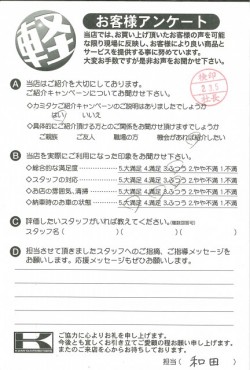 軽
お客様アンケート
当店では、お買い上げ頂いたお客様の声を可能
な限り現場に反映し、お客様により良い商品と
サービスを提供する事に努めています。
大変お手数ですが是非お声をお聞かせ下さい。
検印
社長
A 当店はご紹介を大切にしております。
ご紹介キャンペーンについてお聞かせ下さい。
◇カミタケご紹介キャンペーンのご説明はありましたでしょうか
はい いいえ
◇具体的にご紹介頂ける方とのご関係をお聞かせ頂けますでしょうか
ご親族 ご友人 職場の方 機会があれば紹介したい
B 当店を実際にご利用になった印象をお聞かせ下さい。
◇総合的な満足度 5.大満足 4.満足 3.ふつう 2.やや不満 1.不満
◇スタッフの対応 5.大満足 4.満足 3.ふつう 2.やや不満 1.不満
◇お店の雰囲気、清掃 5.大満足 4.満足 3.ふつう 2.やや不満 1.不満
◇納車時のお車の状態 5.大満足 4.満足 3.ふつう 2.やや不満 1.不満
C 評価したいスタッフがいれば教えてください。
スタッフ名( )( )( )
D 担当させて頂きましたスタッフへのご指摘、ご指導メッセージを
お願いします。応援メッセージもぜひお願いします。
K
ご協力に心よりお礼を申し上げます。
今後とも宜しくお引き立てご愛顧の程お願い申し上げます。
またのご来店を心からお待ちしております。
担当( 和田 )